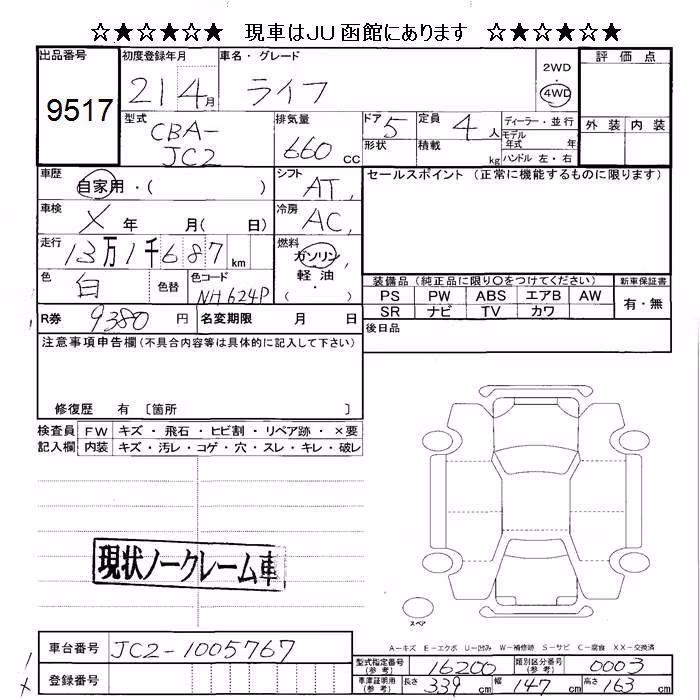 ☆★☆★☆★ 現車はJU函館にあります ☆★☆★☆★
出品番号 初度登録年月 車名・グレード 2WD 評価点
9517 21 4月 ライフ 4WD
型式 排気量 ドア 定員 ディーラー・並行 外装 内装
CBA-JC2 660cc 5 4人 モデル年式 年
形状 積載 kg ハンドル 左・右
車歴 自家用・( ) シフト AT セールスポイント (正常に機能するものに限ります)
車検 X年 月( 日) 冷房 AC
走行 13万1千687km 燃料 ガソリン
色 白 色替 色コード NH624P 軽油 ( )
装備品(純正品に限り○をつけてください) 新車保証書
PS PW ABS エアB AW 有・無
SR ナビ TV カワ
R券 9380円 名変期限 月 日 後日品
注意事項申告欄(不具合内容等は具体的に記入して下さい)
修復歴 有 〔箇所 〕
検査員 FW キズ・飛石・ヒビ割・リペア跡・×要
記入欄 内装 キズ・汚レ・コゲ・穴・スレ・キレ・破レ
現状ノークレーム車
スペア
A-キズ E-エクボ U-凹み W-補修跡 S-サビ C-腐食 XX-交換済
車台番号 JC2-1005767
型式指定番号(参考) 16200 類別区分番号(参考) 0003
登録番号 車庫証明用(参考) 長さ 339cm 幅 147cm 高さ 163cm